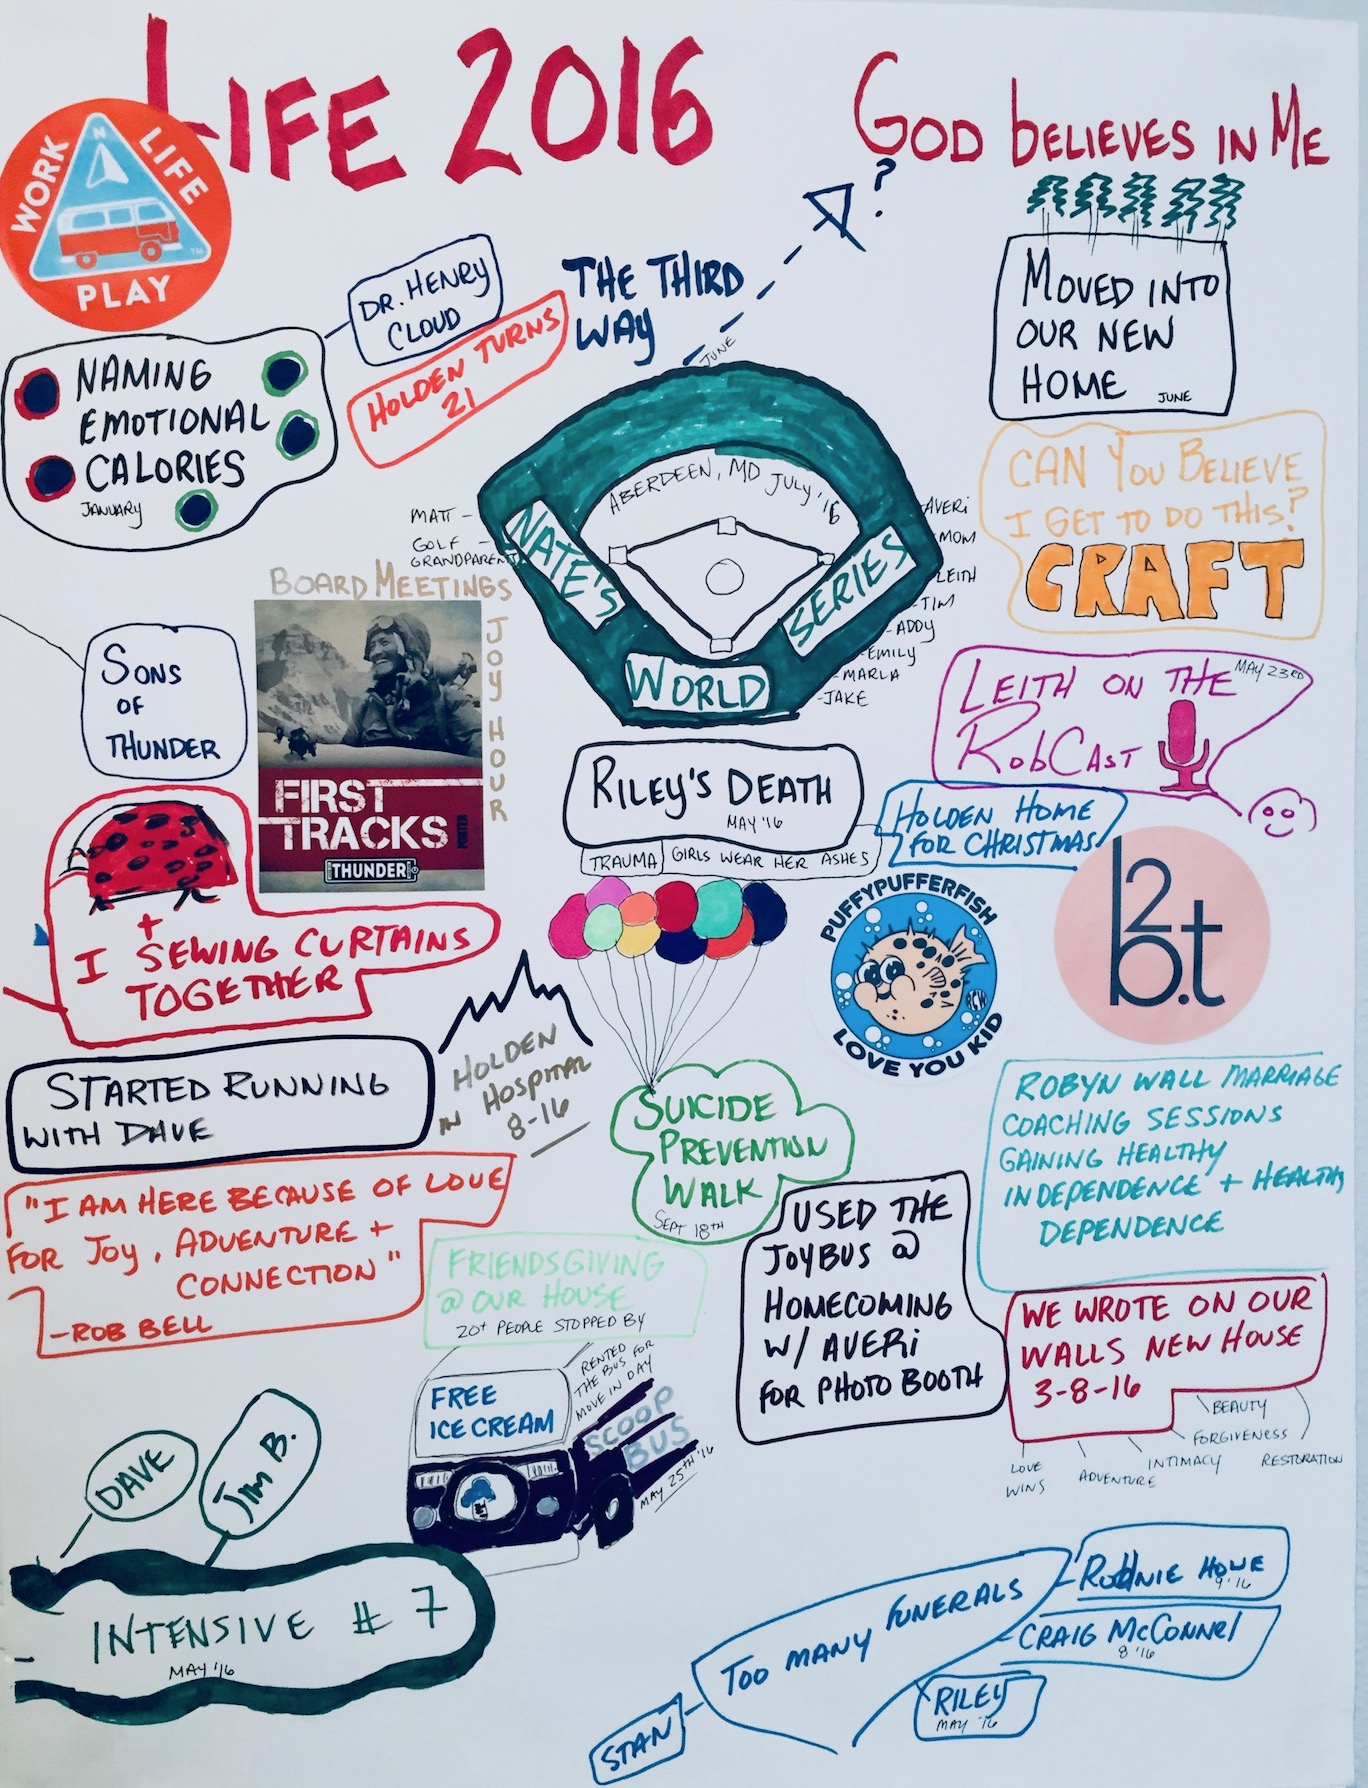 LIFE 2016
GOD BELIEVES IN ME
WORK N LIFE
PLAY
TM
DR. HENRY
CLOUD
THE THIRD
WAY
JUNE
?
MOVED INTO
OUR NEW
HOME
JUNE
HOLDEN TURNS
21
NAMING
EMOTIONAL
CALORIES
JANUARY
CAN YOU BELIEVE
I GET TO DO THIS?
CRAFT
ABERDEEN, MD JULY '16
NATE'S
WORLD
SERIES
MATT
GOLF
GRANDPARENTS
AVERi
MOM
LEITH
TIM
ADDY
EMILY
MARLA
JAKE
BOARD MEETINGS
JOY HOUR
FIRST
TRACKS
PORTER
THUNDER
SONS
OF
THUNDER
LEITH ON THE
ROBCAST
MAY 23RD
RILEY'S DEATH
MAY '16
TRAUMA
GIRLS WEAR HER ASHES
HOLDEN HOME
FOR CHRISTMAS
+
I SEWING CURTAINS
TOGETHER
PUFFYPUFFERFISH
LOVE YOU KID
RGW
l2
b.t
HOLDEN
IN HOSPITAL
8-16
STARTED RUNNING
WITH DAVE
SUICIDE
PREVENTION
WALK
SEPT 18TH
ROBYN WALL MARRIAGE
COACHING SESSIONS
GAINING HEALTHY
INDEPENDENCE + HEALTHY
DEPENDENCE
"I AM HERE BECAUSE OF LOVE
FOR JOY, ADVENTURE +
CONNECTION"
-ROB BELL
FRIENDSGIVING
@ OUR HOUSE
20+ PEOPLE STOPPED BY
USED THE
JOYBUS @
HOMECOMING
W/ AVERi
FOR PHOTO BOOTH
WE WROTE ON OUR
WALLS NEW HOUSE
3-8-16
LOVE
WINS
ADVENTURE
INTIMACY
FORGIVENESS
BEAUTY
RESTORATION
RENTED
THE BUS FOR
MOVE IN DAY
FREE
ICE CREAM
SCOOP
BUS
MAY 25TH '16
DAVE
JIM B.
INTENSIVE # 7
MAY '16
TOO MANY FUNERALS
HOWE
9 '16
CRAIG McCONNEL
8 '16
RILEY
MAY '16
STAN